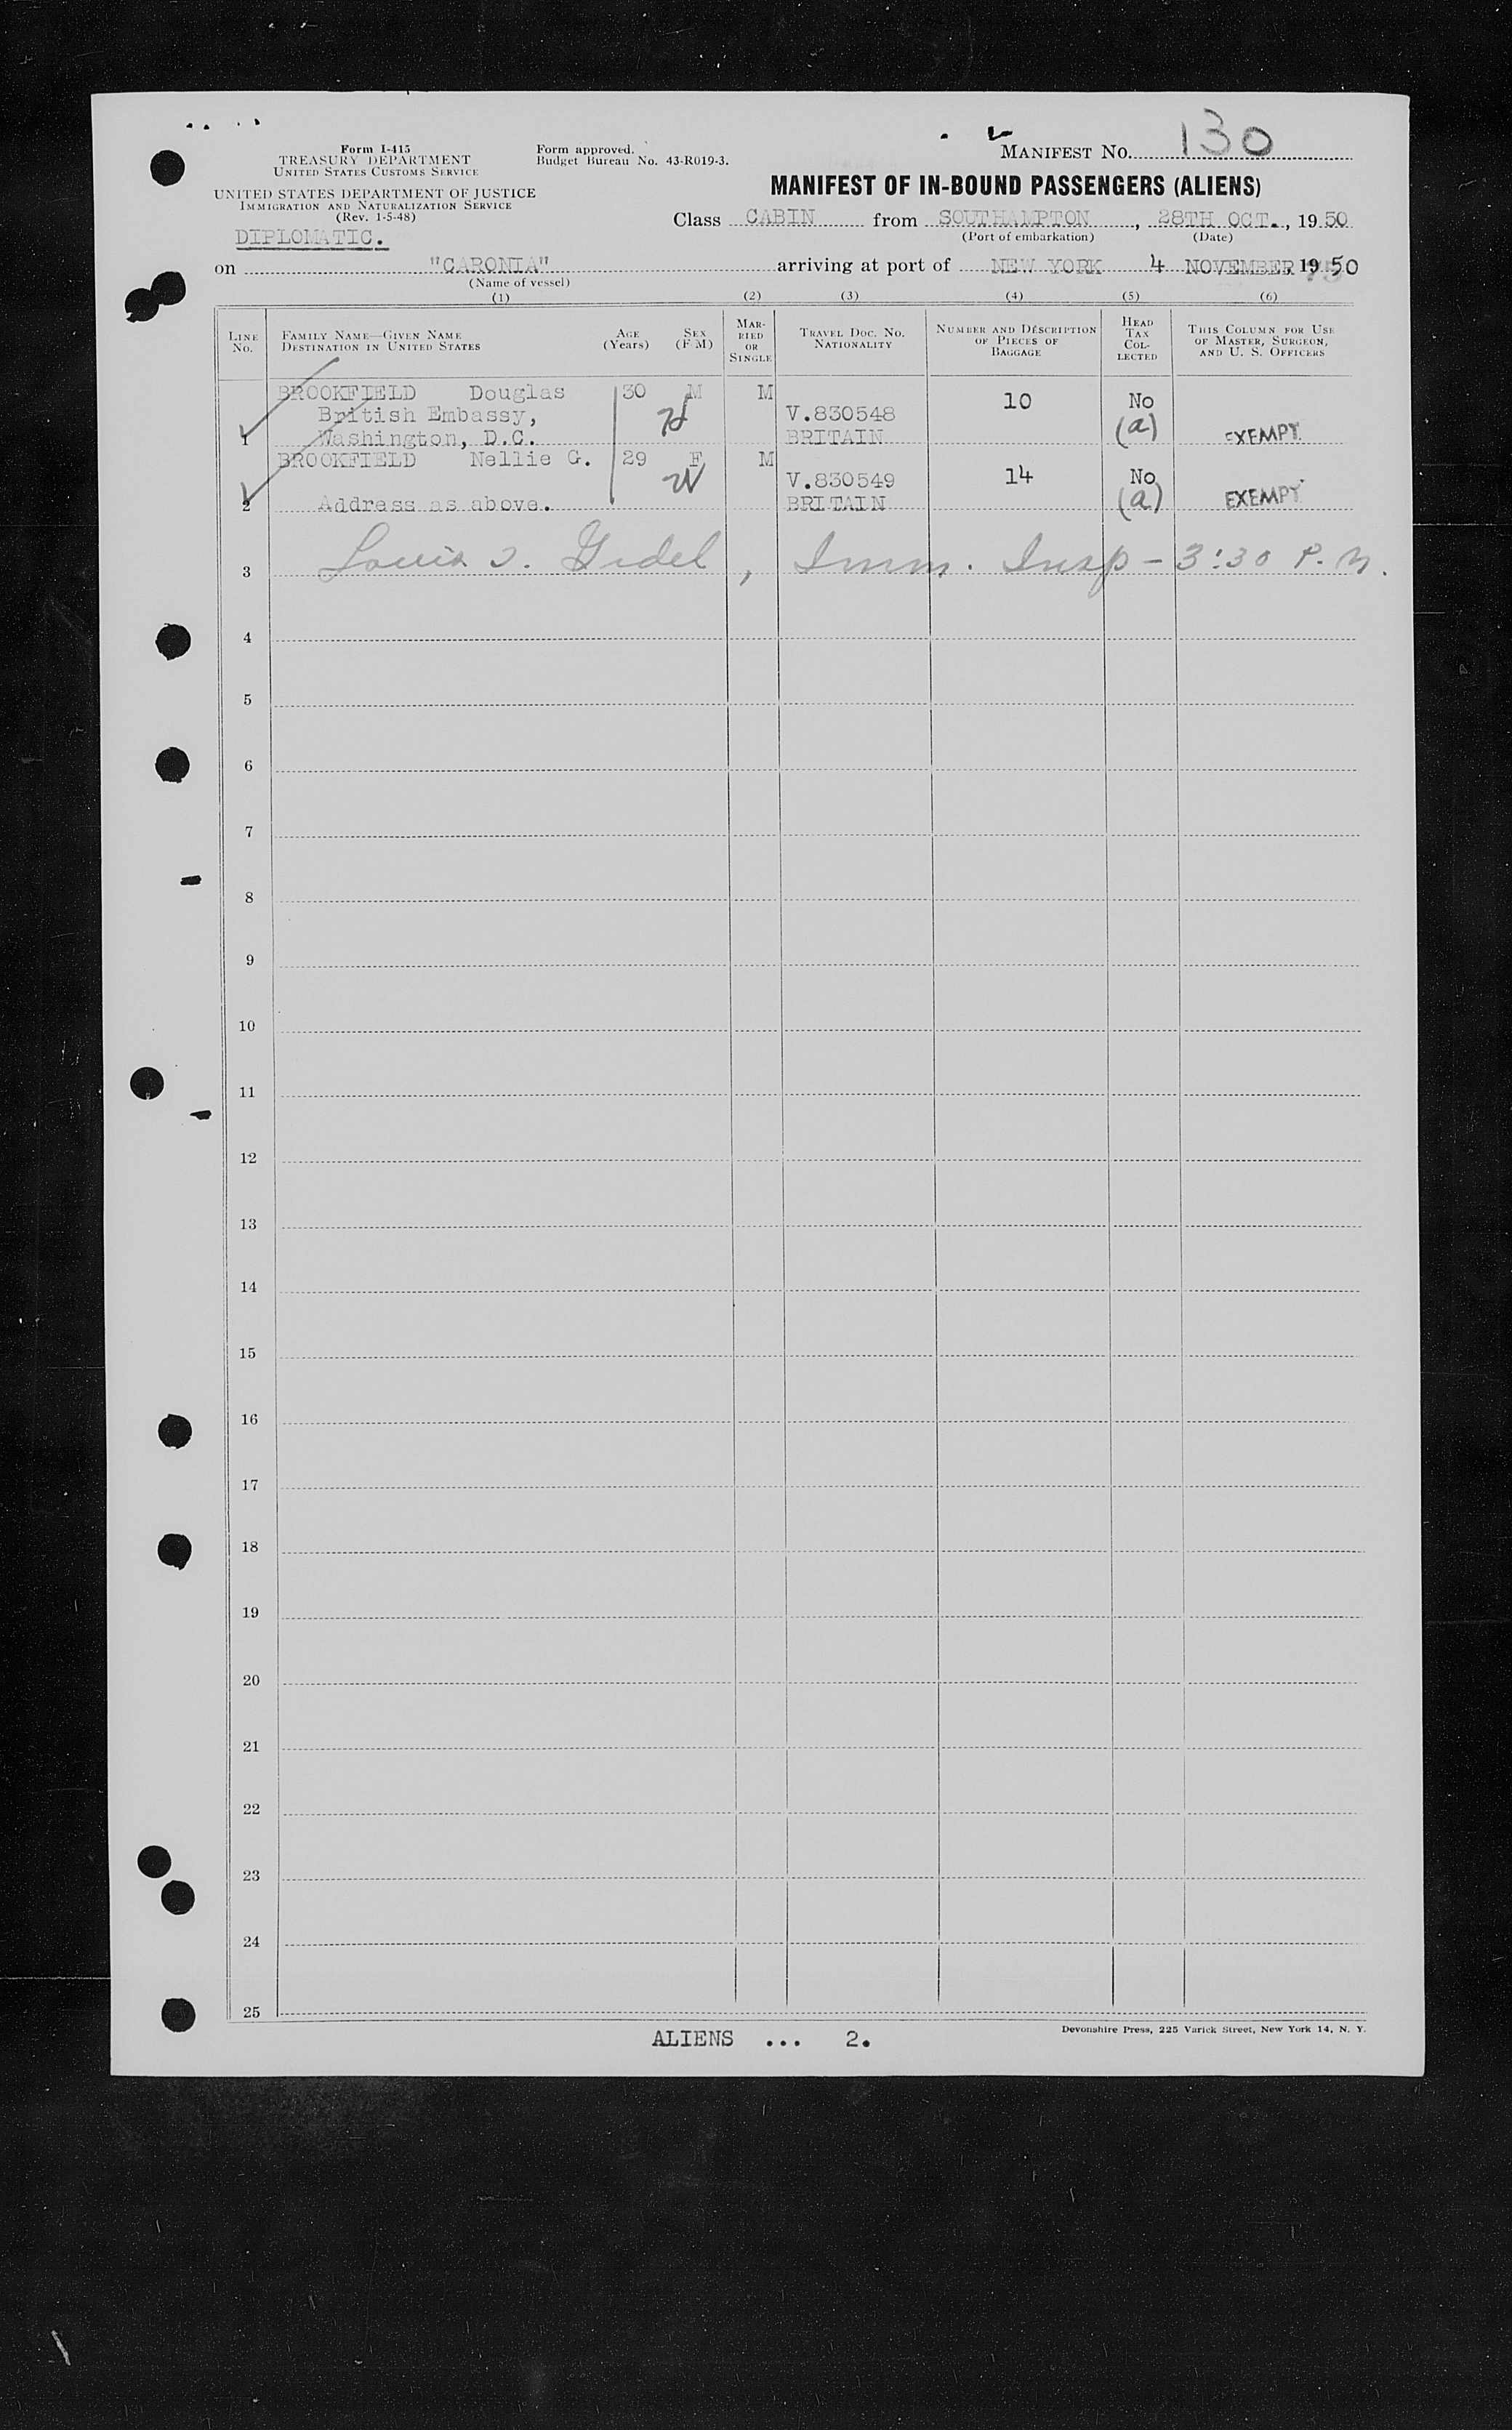 Form I-415
TREASURY DEPARTMENT
UNITED STATES CUSTOMS SERVICE
UNITED STATES DEPARTMENT OF JUSTICE
IMMIGRATION AND NATURALIZATION SERVICE
(Rev. 1-5-48)
Form approved.
Budget Bureau No. 43-R019-3.
MANIFEST NO. 130
MANIFEST OF IN-BOUND PASSENGERS (ALIENS)
DIPLOMATIC.
Class CABIN from SOUTHAMPTON, 28TH OCT., 19 50
(Port of embarkation) (Date)
on "CARONIA" arriving at port of NEW YORK 4 NOVEMBER 19 50
(Name of vessel)
(1) (2) (3) (4) (5) (6)
LINE NO.
FAMILY NAME—GIVEN NAME
DESTINATION IN UNITED STATES
AGE (Years)
SEX (F M)
MARRIED OR SINGLE
TRAVEL DOC. NO. NATIONALITY
NUMBER AND DESCRIPTION OF PIECES OF BAGGAGE
HEAD TAX COLLECTED
THIS COLUMN FOR USE OF MASTER, SURGEON, AND U. S. OFFICERS
BROOKFIELD Douglas 30 M M 10 No
British Embassy, V.830548 (a)
1 Washington, D.C. BRITAIN EXEMPT
BROOKFIELD Nellie G. 29 F M 14 No
V.830549
2 Address as above. BRITAIN (a) EXEMPT
3 Louis Imm. Insp - 3:30 P.M.
4
5
6
7
8
9
10
11
12
13
14
15
16
17
18
19
20
21
22
23
24
25
ALIENS ... 2.
Devonshire Press, 225 Varick Street, New York 14, N. Y.